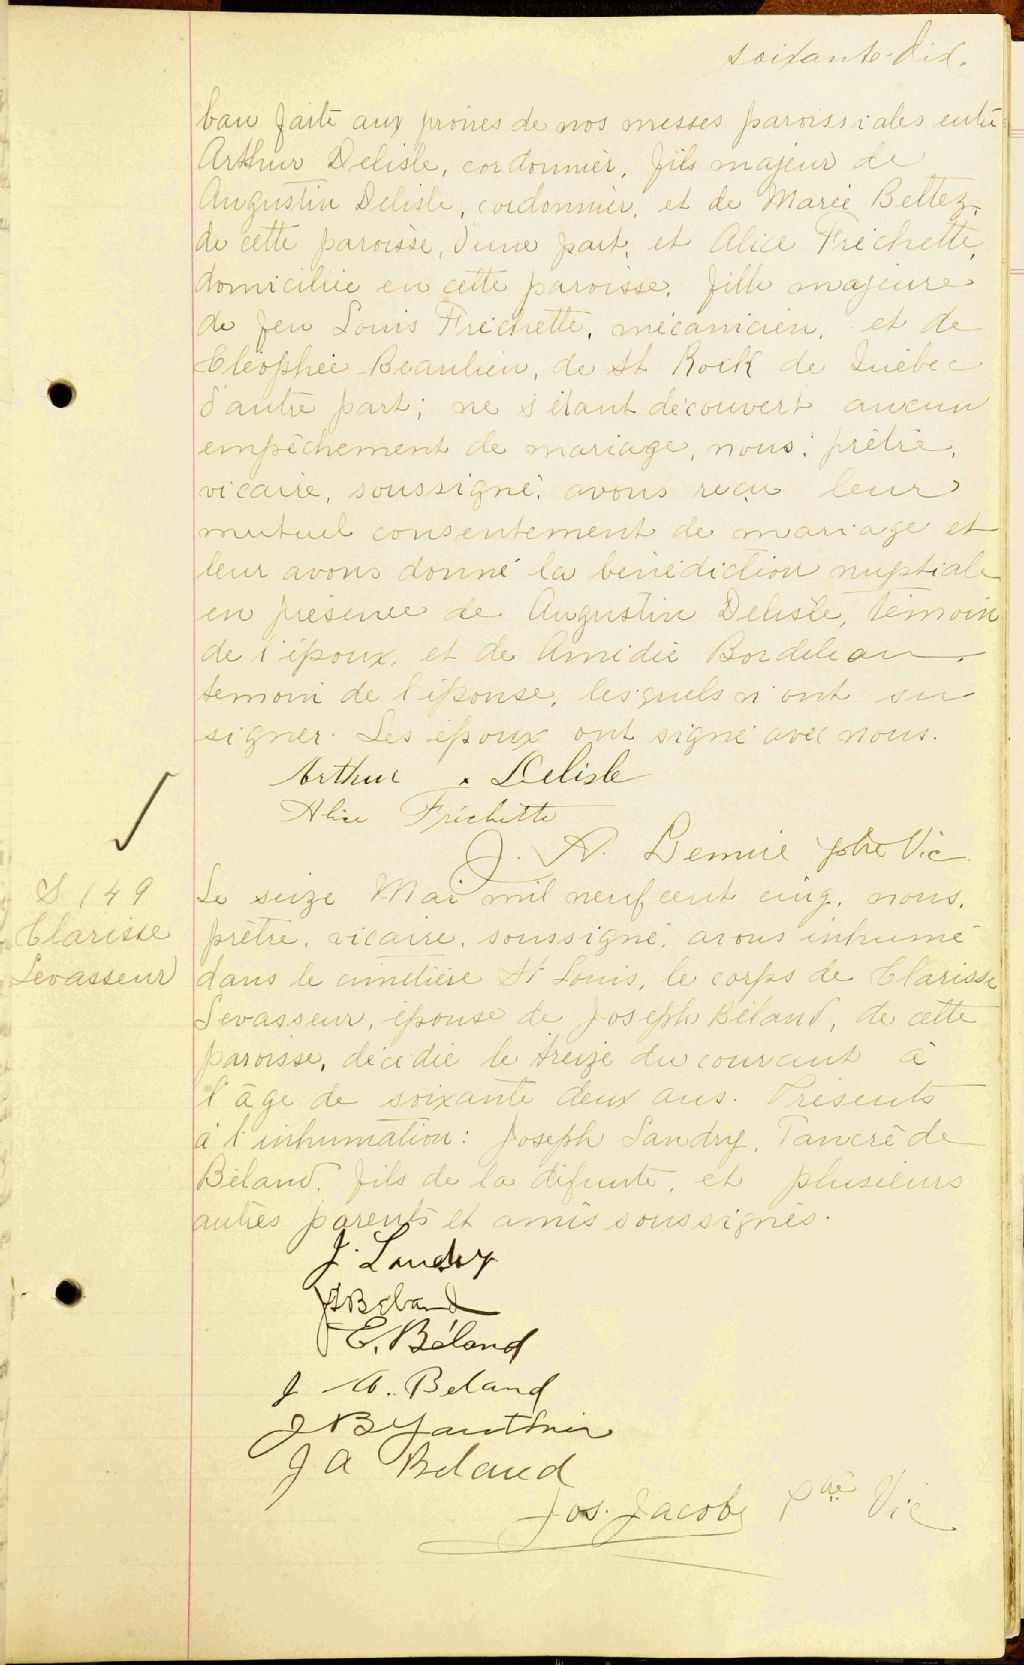 soixante-dix.
ban faite aux prônes de nos messes paroissiales entre
Arthur Delisle, cordonnier, fils majeur de
Augustin Delisle, cordonnier, et de Marie Bettez,
de cette paroisse, d'une part, et Alice Fréchette,
domiciliée en cette paroisse, fille majeure
de feu Louis Fréchette, mécanicien, et de
Cléophée Beaulieu, de St Rock de Québec
d'autre part; ne s'étant découvert aucun
empêchement de mariage, nous, prêtre,
vicaire, soussigné, avons reçu leur
mutuel consentement de mariage et
leur avons donné la bénédiction nuptiale
en présence de Augustin Delisle, témoin
de l'époux, et de Amédée Bordeleau,
témoin de l'épouse, lesquels n'ont su
signer. Les époux ont signé avec nous.
Arthur Delisle
Alice Fréchette
J. A. Lemire ptre Vic.
S 149
Clarisse
Levasseur
Le seize Mai mil neuf cent cinq, nous,
prêtre, vicaire, soussigné, avons inhumé
dans le cimetière St Louis, le corps de Clarisse
Levasseur, épouse de Joseph Béland, de cette
paroisse, décédée le treize du courant à
l'âge de soixante deux ans. Présents
à l'inhumation: Joseph Landry, Tancrède
Béland, fils de la défunte, et plusieurs
autres parents et amis soussignés.
J. Landry
Béland
E. Béland
J A. Beland
J B Gauthier
J A Beland
Jos. Jacob Ptre Vic